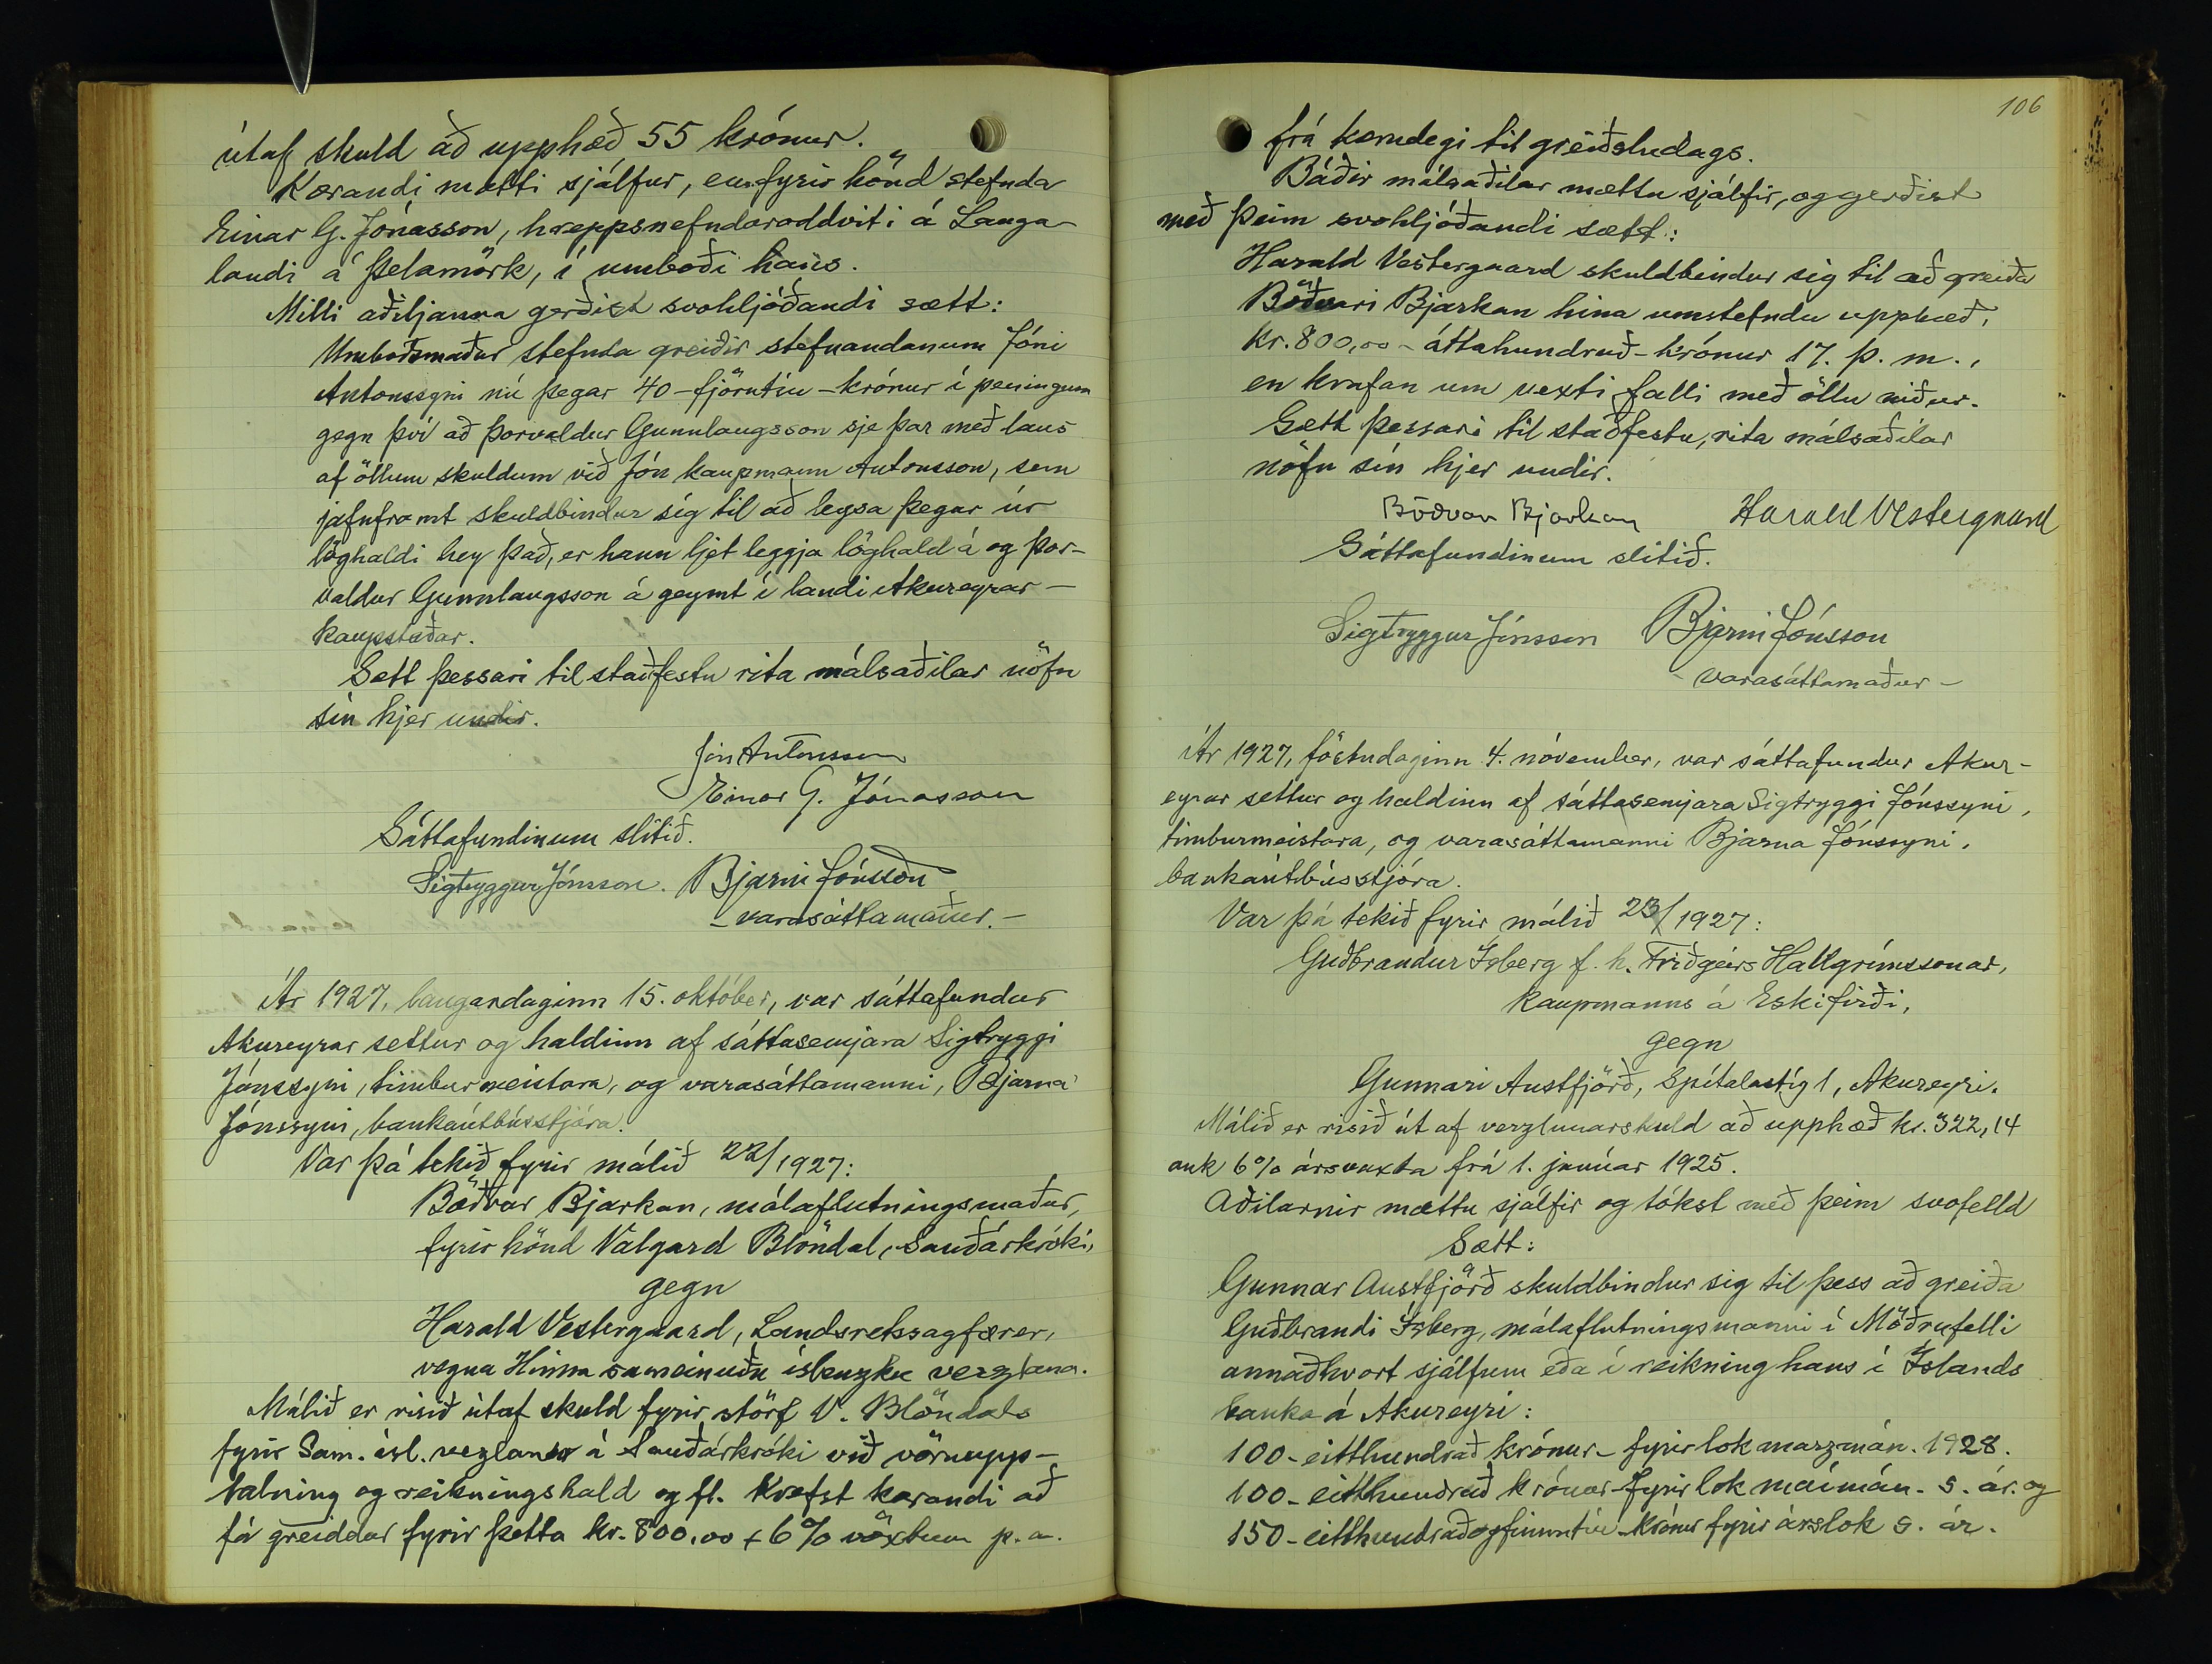 útaf skuld að upphæð 55 krónur.
Kærandi mætti sjálfur, en fyrir hönd stefnda
Einar G. Jónasson, hreppsnefndaroddviti á Lauga-
landi á Þelamörk, í umboði hans.
Milli aðiljanna gerðist svohljóðandi sætt:
Umboðsmaður stefnda greiðir stefnandanum Jóni
Antonssyni nú þegar 40 - fjörutíu - krónur í peningum
gegn því að Þorvaldur Gunnlaugsson sje þar með laus
af öllum skuldum við Jón kaupmann Antonsson, sem
jafnframt skuldbindur sig til að leysa þegar úr
löghaldi hey það, er hann ljet leggja löghald á og Þor-
valdur Gunnlaugsson á geymt í landi Akureyrar-
kaupstaðar.
Sætt þessari til staðfestu rita málsaðilar nöfn
sín hjer undir.
Jón Antonsson
Einar G. Jónasson
Sáttafundinum slitið.
Sigtryggur Jónsson. Bjarni Jónsson
- varasáttamaður. -
Ár 1927, laugardaginn 15. október, var sáttafundur
Akureyrar settur og haldinn af sáttasemjara Sigtryggi
Jónssyni, timburmeistara, og varasáttamanni, Bjarna
Jónssyni, bankaútbússtjóra.
Var þá tekið fyrir málið 22/1927:
Böðvar Bjarkan, málaflutningsmaður,
fyrir hönd Valgard Blöndal, Sauðárkróki,
gegn
Harald Vestergaard, Landsretssagfører,
vegna Hinna sameinuðu íslenzku verzlana.
Málið er risið útaf skuld fyrir störf V. Blöndals
fyrir Sam. ísl. verzlanir á Sauðárkróki við vöruupp-
talning og reikningshald og fl. Krefst kærandi að
fá greiddar fyrir þetta kr. 800,00 + 6% vöxtum p. a.
106
frá kærudegi til greiðsludags.
Báðir málsaðilar mættu sjálfir, og gerðist
með þeim svohljóðandi sætt:
Harald Vestergaard skuldbindur sig til að greiða
Böðvari Bjarkan hina umstefndu upphæð,
kr. 800,00 - áttahundruð - krónur 17. þ. m.,
en krafan um vexti falli með öllu niður.
Sætt þessari til staðfestu, rita málsaðilar
nöfn sín hjer undir.
Böðvar Bjarkan Harald Vestergaard
Sáttafundinum slitið.
Sigtryggur Jónsson Bjarni Jónsson
- varasáttamaður -
Ár 1927, föstudaginn 4. nóvember, var sáttafundur Akur-
eyrar settur og haldinn af sáttasemjara Sigtryggi Jónssyni,
timburmeistara, og varasáttamanni Bjarna Jónssyni,
bankaútbússtjóra.
Var þá tekið fyrir málið 23/1927:
Guðbrandur Ísberg f. h. Friðgeirs Hallgrímssonar,
kaupmanns á Eskifirði,
gegn
Gunnari Austfjörð, Spítalastíg 1, Akureyri.
Málið er risið út af verzlunarskuld að upphæð kr. 322,14
auk 6% ársvaxta frá 1. janúar 1925.
Aðilarnir mættu sjálfir og tókst með þeim svofelld
Sætt:
Gunnar Austfjörð skuldbindur sig til þess að greiða
Guðbrandi Ísberg, málaflutningsmanni í Möðrufelli
annaðhvort sjálfum eða í reikning hans í Íslands
banka á Akureyri:
100 - eitthundrað krónur - fyrir lok marzmán. 1928.
100 - eitthundrað krónur - fyrir lok maímán. s. ár. og
150 - eitthundraðogfimmtíu - krónur fyrir árslok s. ár.